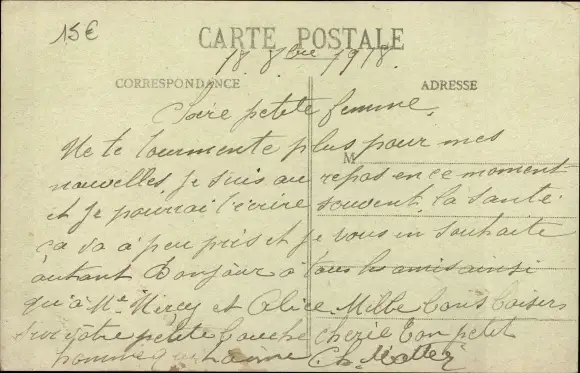 15€
CARTE POSTALE
18 8bre 1918.
CORRESPONDANCE
ADRESSE
petite femme,
Ne te tourmente plus pour mes
M
nouvelles, je suis au repos en ce moment
et je pourrai t'écrire souvent, la santé
ça va à peu près et je vous en souhaite
autant Bonjour à tous les amis ainsi
qu'à Me et Alice. Mille bons baisers
sur votre petite bouche cherie Ton petit
homme qui t'aime Ch.